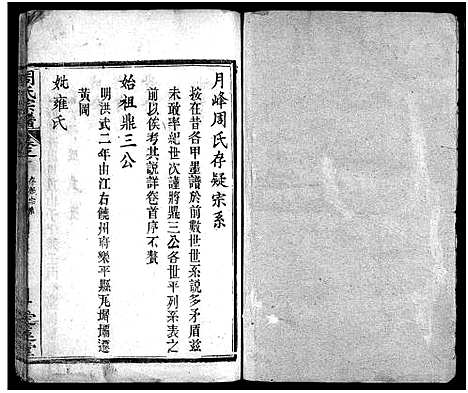 月峰周氏存疑宗系
按在昔各甲墨譜於前數世世系說多矛盾玆
未敢率紀世次謹將鼎三公各世平列系表之
前以俟考其說詳卷首序不贅
始祖鼎三公
明洪武二年由江右饒州府樂平縣瓦墀壩遷
黃岡
妣雍氏
周氏宗譜
存疑宗系